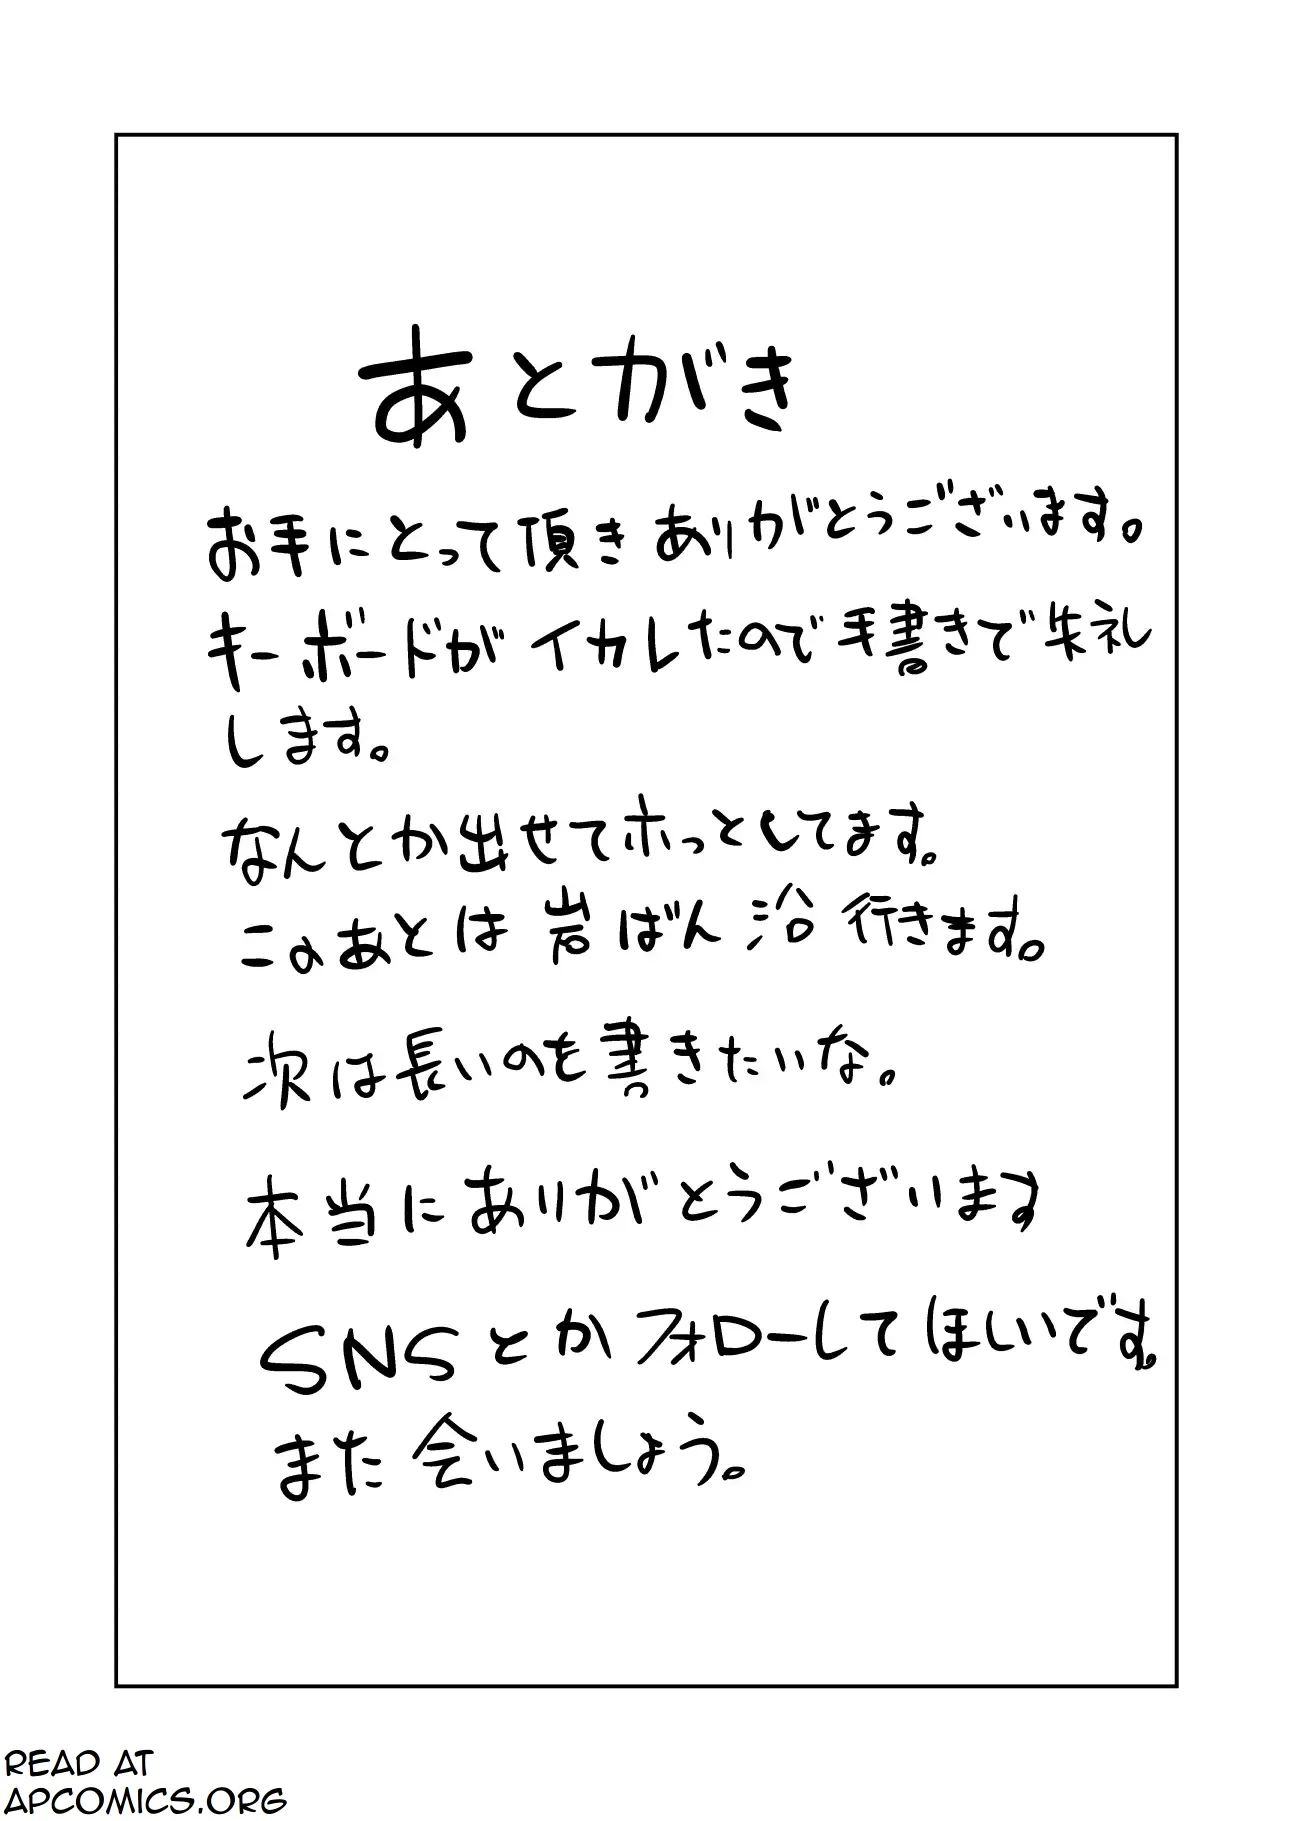 あとがき
お手にとって頂きありがとうございます。
キーボードがイカレたので手書きで失礼
します。
なんとか出せてホっとしてます。
このあとは岩ばん浴行きます。
次は長いのを書きたいな。
本当にありがとうございます
SNSとかフォローしてほしいです。
また会いましょう。
READ AT
APCOMICS.ORG